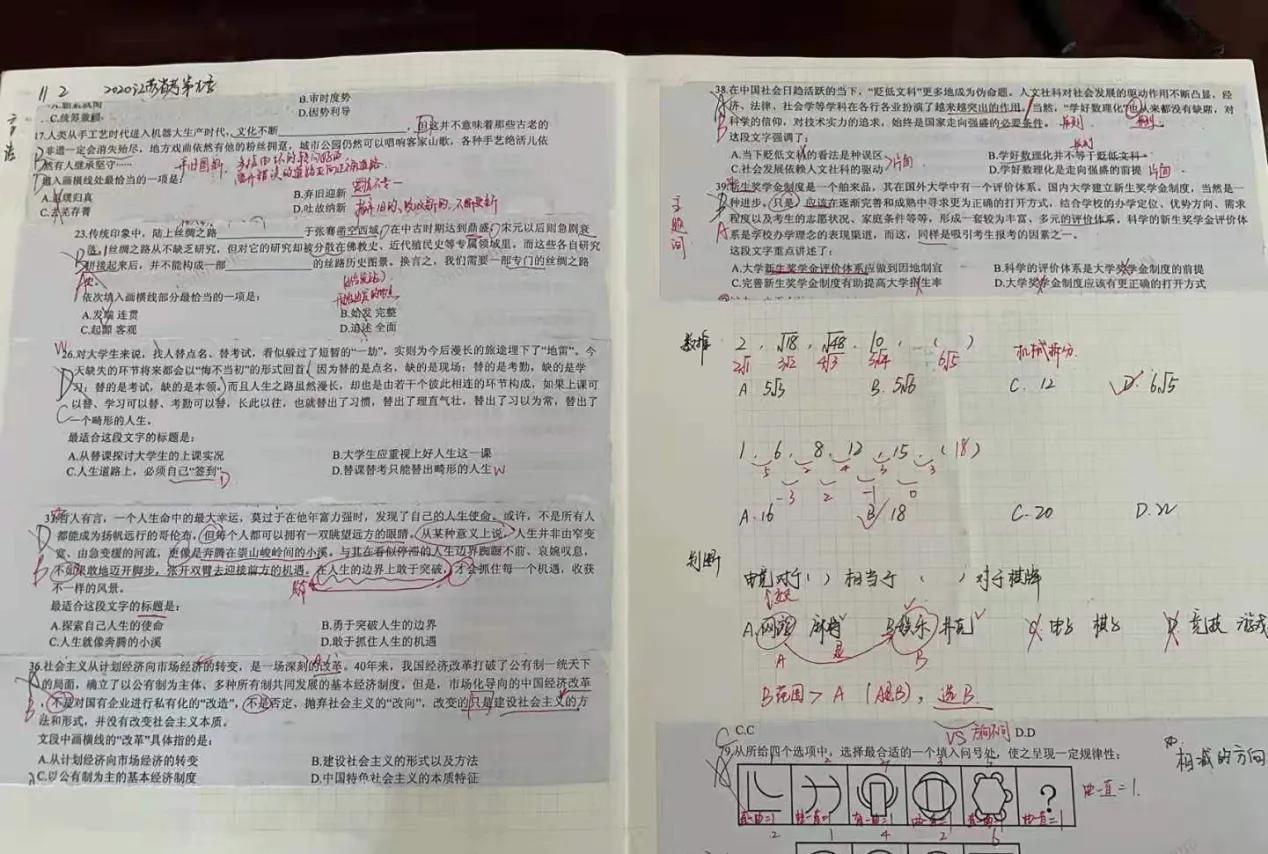 11 2 2020江苏省考第
B.审时度势
C.统筹兼顾 D.因势利导
17.人类从手工艺时代进入机器大生产时代,文化不断____________,但这并不意味着那些古老的
非遗一定会消失殆尽,地方戏曲依然有他的粉丝拥趸,城市公园仍然可以唱响客家山歌,各种手艺绝活儿依
然有人继承坚守……
填入画横线处最恰当的一项是:
A.返璞归真 B.弃旧迎新
C.去芜存菁 D.吐故纳新
23.传统印象中,陆上丝绸之路____________于张骞凿空西域,在中古时期达到鼎盛,宋元以后则急剧衰
落。丝绸之路从不缺乏研究,但对它的研究却被分散在佛教史、近代殖民史等专属领域里,而这些各自研究
拼接起来后,并不能构成一部____________的丝路历史图景。换言之,我们需要一部专门的丝绸之路
史。
依次填入画横线部分最恰当的一项是:
A.发端 连贯 B.始发 完整
C.起源 客观 D.追述 全面
26.对大学生来说,找人替点名、替考试,看似躲过了短暂的“一劫”,实则为今后漫长的旅途埋下了“地雷”。今
天缺失的环节将来都会以“悔不当初”的形式回首。因为替的是点名,缺的是现场;替的是考勤,缺的是学
习;替的是考试,缺的是本领。而且人生之路虽然漫长,却也是由若干个彼此相连的环节构成,如果上课可
以替、学习可以替、考勤可以替,长此以往,也就替出了习惯,替出了理直气壮,替出了习以为常,替出了
一个畸形的人生。
最适合这段文字的标题是:
A.从替课探讨大学生的上课实况 B.大学生应重视上好人生这一课
C.人生道路上,必须自己“签到” D.替课替考只能替出畸形的人生
哲人有言,一个人生命中的最大幸运,莫过于在他年富力强时,发现了自己的人生使命。或许,不是所有人
都能成为扬帆远行的哥伦布,但每个人都可以拥有一双眺望远方的眼睛。从某种意义上说,人生并非由窄变
宽、由急变缓的河流,更像是奔腾在崇山峻岭间的小溪。与其在看似停滞的人生边界踟蹰不前、哀婉叹息,
不如果敢地迈开脚步,张开双臂去迎接前方的机遇。在人生的边界上敢于突破,才会抓住每一个机遇,收获
不一样的风景。
最适合这段文字的标题是:
A.探索自己人生的使命 B.勇于突破人生的边界
C.人生就像奔腾的小溪 D.敢于抓住人生的机遇
36.社会主义从计划经济向市场经济的转变,是一场深刻的改革。40年来,我国经济改革打破了公有制一统天下
的局面,确立了以公有制为主体、多种所有制共同发展的基本经济制度,但是,市场化导向的中国经济改革
,不是对国有企业进行私有化的“改造”,不是否定、抛弃社会主义的“改向”,改变的只是建设社会主义的方
法和形式,并没有改变社会主义本质。
文段中画横线的“改革”具体指的是:
A.从计划经济向市场经济的转变 B.建设社会主义的形式以及方法
C.以公有制为主的基本经济制度 D.中国特色社会主义的本质特征
38.在中国社会日趋活跃的当下,“贬低文科”更多地成为伪命题。人文社科对社会发展的驱动作用不断凸显,经
济、法律、社会学等学科在各行各业扮演了越来越突出的作用,当然,“学好数理化”也从来都没有缺席,对
科学的信仰,对技术实力的追求,始终是国家走向强盛的必要条件。
这段文字强调了:
A.当下贬低文科的看法是种误区 B.学好数理化并不等于贬低文科
C.社会发展依赖人文社科的驱动 片面 D.学好数理化是走向强盛的前提 片面
39.新生奖学金制度是一个舶来品,其在国外大学中有一个评价体系。国内大学建立新生奖学金制度,当然是一
种进步,只是,应该在逐渐完善和成熟中寻求更为正确的打开方式,结合学校的办学定位、优势方向、需求
程度以及考生的志愿状况、家庭条件等等,形成一套较为丰富、多元的评价体系。科学的新生奖学金评价体
系是学校办学理念的表现渠道,而这,同样是吸引考生报考的因素之一。
这段文字重点讲述了:
A.大学新生奖学金评价体系应做到因地制宜 B.科学的评价体系是大学奖学金制度的前提
C.完善新生奖学金制度有助提高大学招生率 D.大学奖学金制度应该有更正确的打开方式
主题词
数推 2 , √18 , √48 , 10 , ( ) 机械拆分
2√1 3√2 4√3 5√4 6√5
A 5√3 B. 5√6 C. 12 D. 6√5
1 , 6 , 8 , 12 , 15 , (18)
5 2 4 3 3
-3 2 -1 0
A. 16 B 18 C. 20 D. 22
判断
电竞对于( )相当于( )对于棋牌
A. 网游 B 娱乐 扑克 D 竞技 游戏
A 是 B
B范围>A (A是B),选B.
C.C VS 方向不同 D.D
79.从所给四个选项中,选择最合适的一个填入问号处,使之呈现一定规律性:
相减的方向
?
曲-直=1.